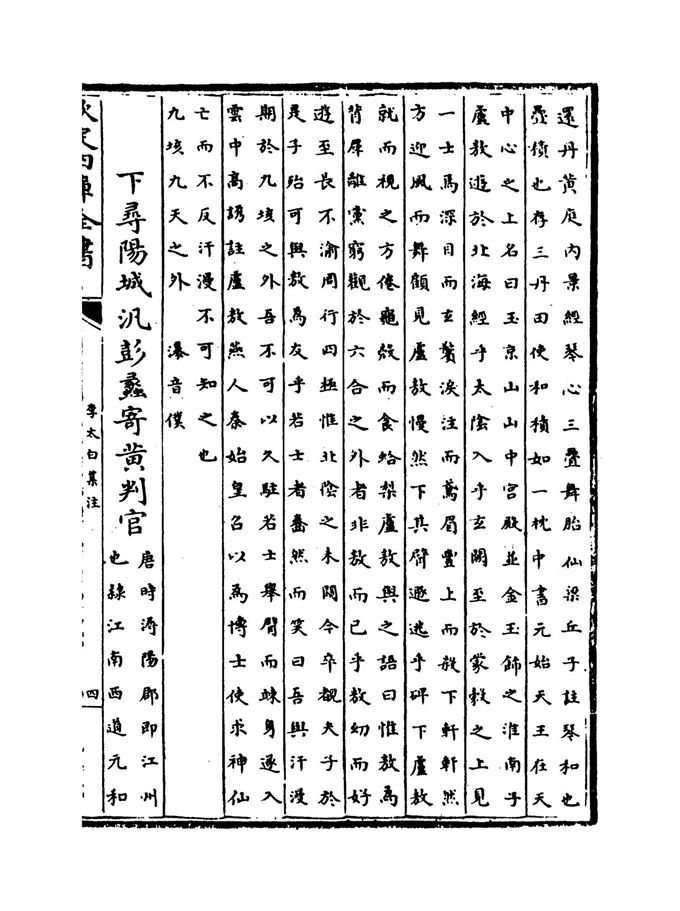 還丹黄庭内景經琴心三疊舞胎仙梁丘子註琴和也
疊積也存三丹田使和積如一枕中書元始天王在天
中心之上名曰玉京山山中宫殿並金玉飾之淮南子
盧敖遊於北海經乎太隂入乎玄闕至於蒙穀之上見
一士焉深目而玄鬢淚注而鳶肩豐上而殺下軒軒然
方迎風而舞顧見盧敖慢然下其臂遯逃乎碑下盧敖
就而視之方倦龜殼而食蛤梨盧敖與之語曰惟敖為
背羣離黨窮觀於六合之外者非敖而已乎敖幼而好
遊至長不渝周行四極惟北隂之未闚今卒覩夫子於
是子殆可與敖為友乎若士者齤然而笑曰吾與汗漫
期於九垓之外吾不可以久駐若士舉臂而竦身遂入
雲中高誘註盧敖燕人秦始皇召以為博士使求神仙
亡而不反汗漫不可知之也
九垓九天之外 瀑音僕
下尋陽城汎彭蠡寄黄判官
唐時潯陽郡即江州
也隸江南西道元和
欽定四庫全書
李太白集注
四